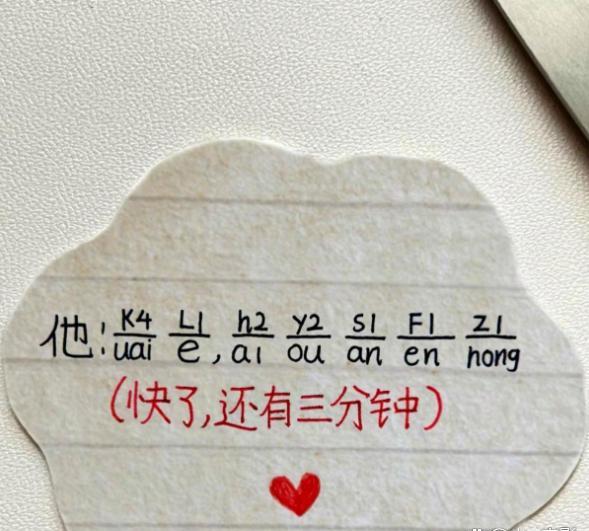 他: K4/uai L1/e, h2/ai y2/ou S1/an F1/en Z1/hong
(快了,还有三分钟)